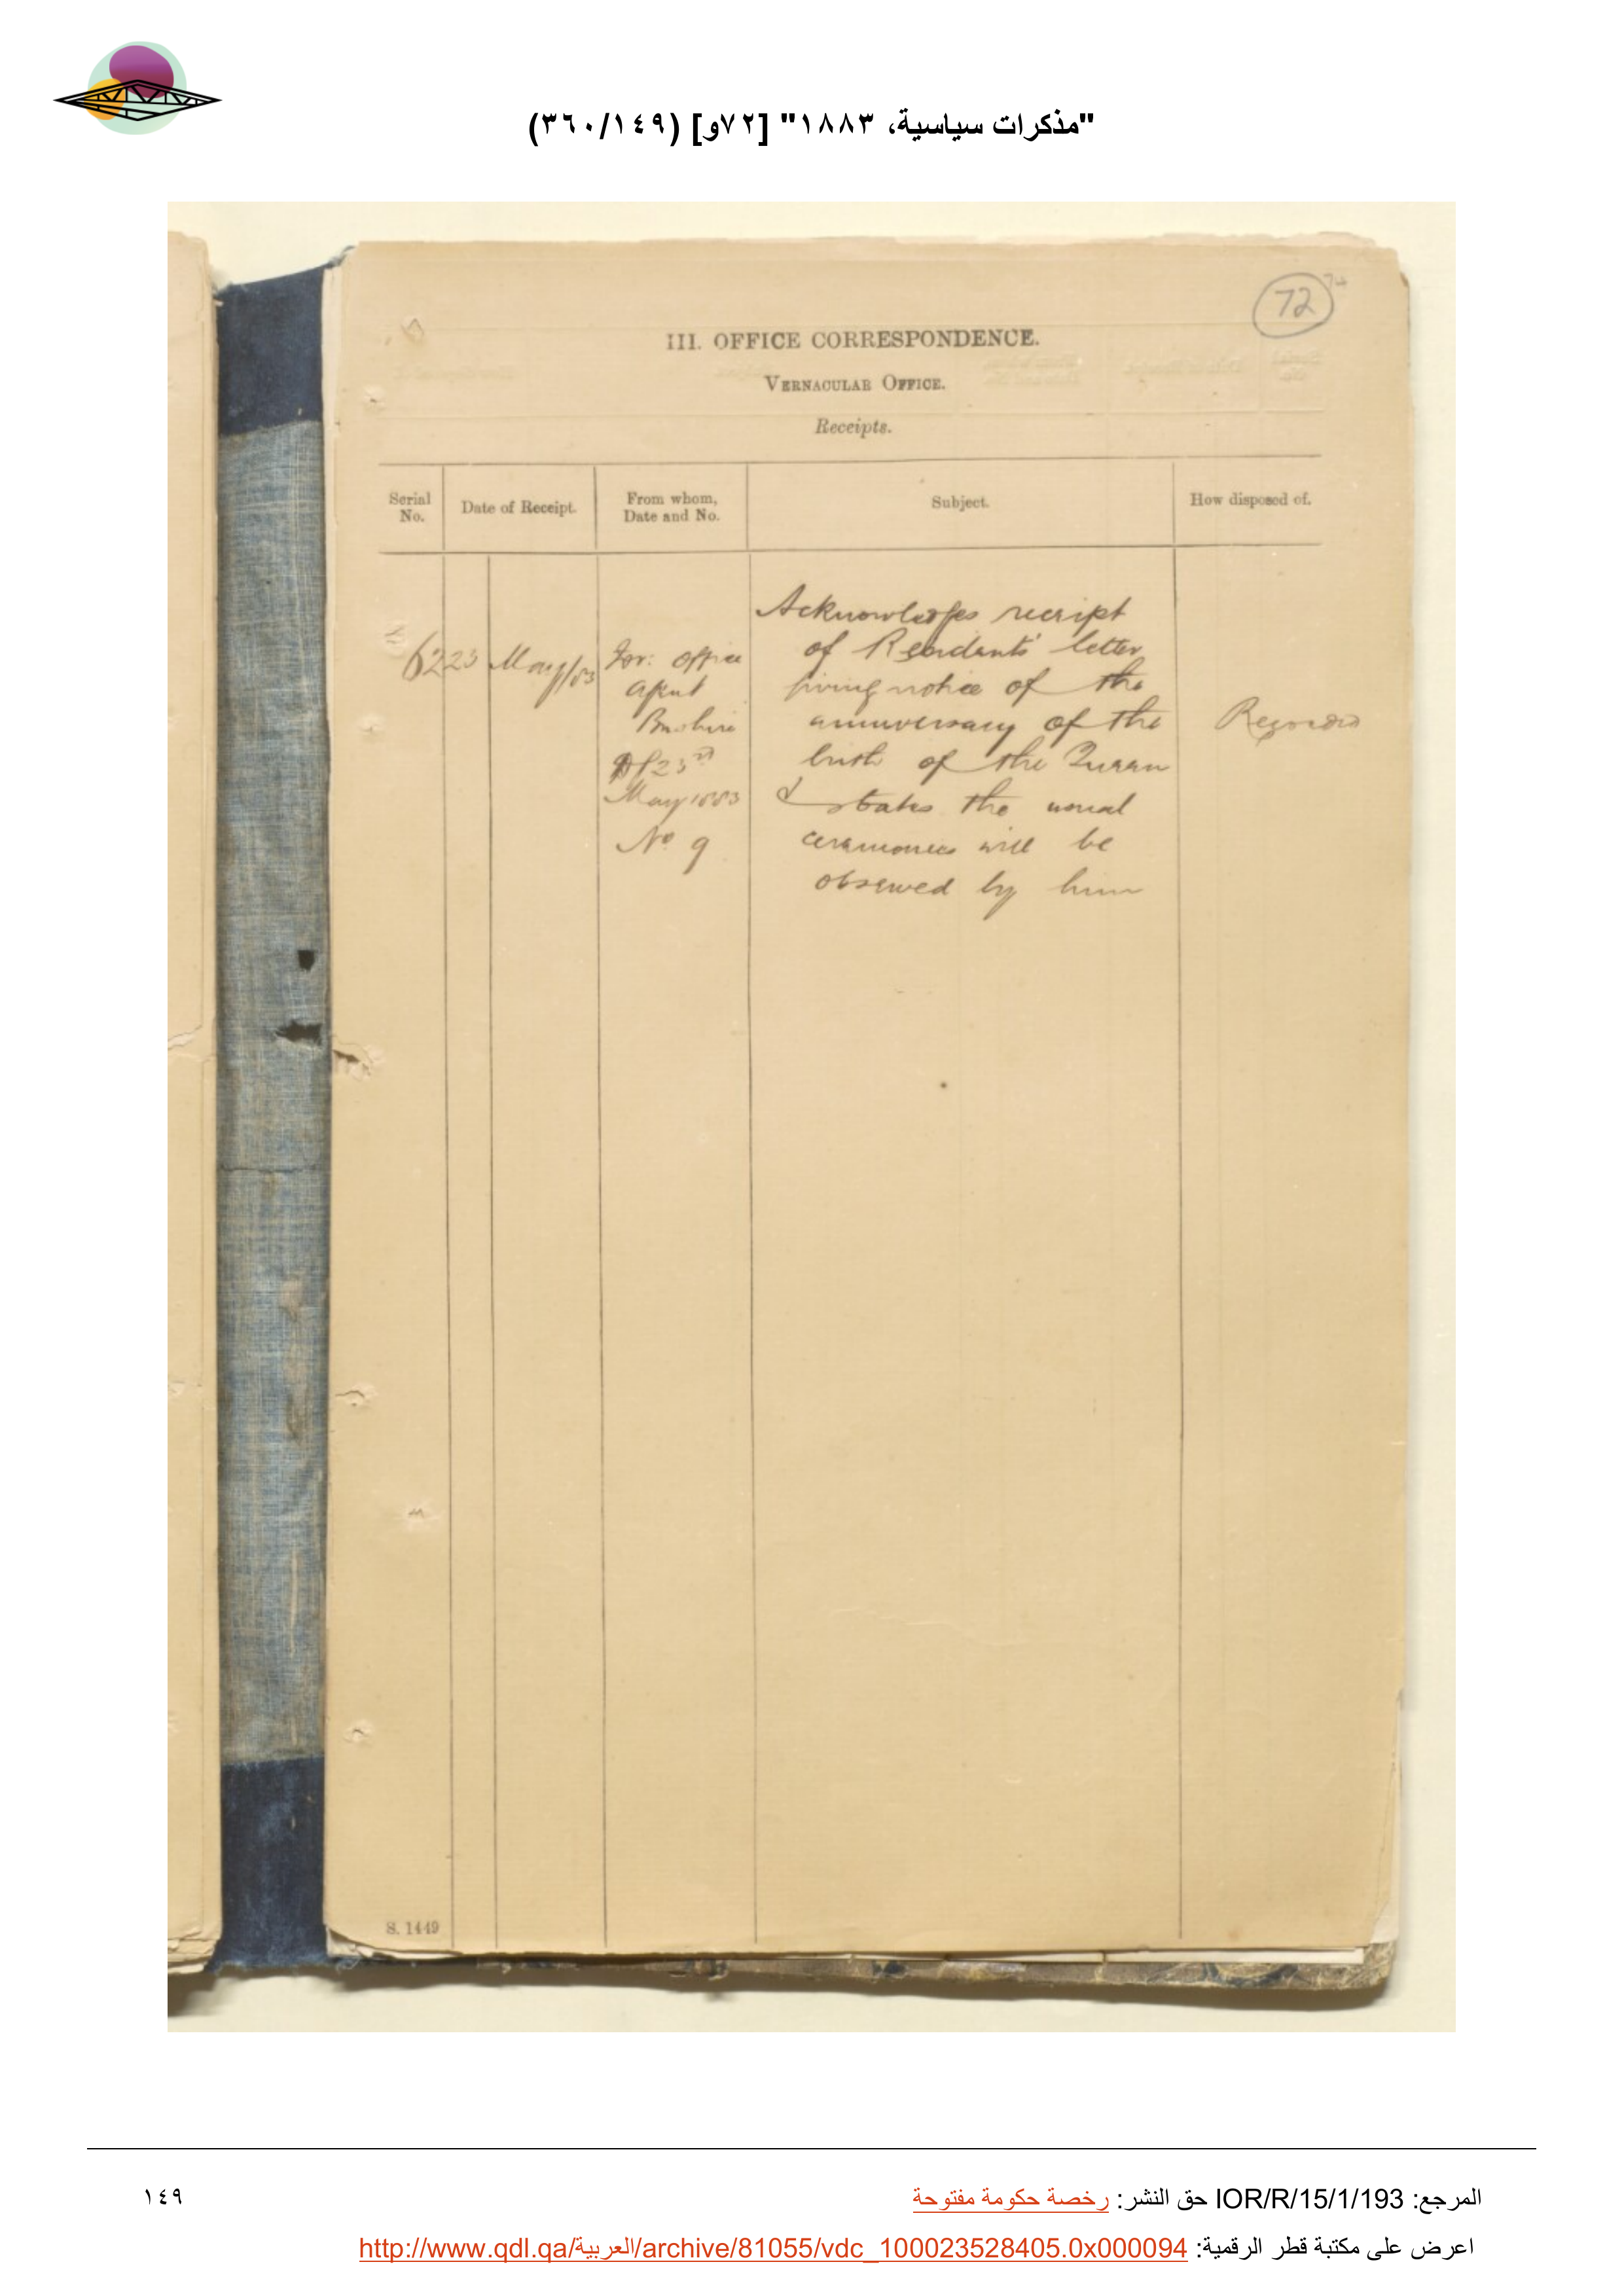 "مذكرات سياسية، ١٨٨٣" [٧٢و] (٣٦٠/١٤٩)
72
III. OFFICE CORRESPONDENCE.
VERNACULAR OFFICE.
Receipts.
Serial No.
Date of Receipt.
From whom, Date and No.
Subject.
How disposed of.
62
23 May/83
For: office
agent
Bushire
23rd
May 1883
No 9
Acknowledges receipt
of Residents' letter
giving notice of the
anniversary of the
birth of the Queen
& states the usual
ceremonies will be
observed by him
Recorded
S. 1449
المرجع: IOR/R/15/1/193 حق النشر: رخصة حكومة مفتوحة
١٤٩
اعرض على مكتبة قطر الرقمية: http://www.qdl.qa/العربية/archive/81055/vdc_100023528405.0x000094